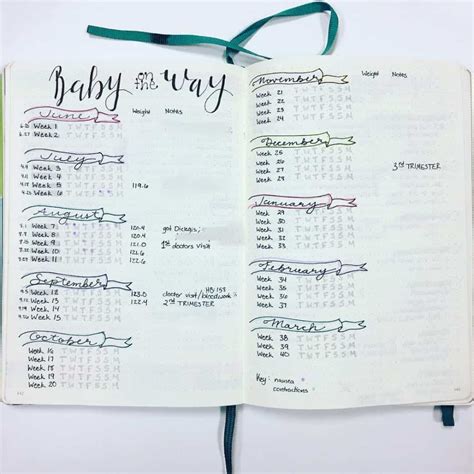 Baby on the Way
Weight Notes
June
6.20 Week 1 T W T F S S M
6.27 Week 2 T W T F S S M
July
Week 3 T W T F S S M
Week 4 T W T F S S M
Week 5 T W T F S S M
Week 6 T W T F S S M 119.6
August
Week 7 T W T F S S M 120.4 got Dickgis;
Week 8 T W T F S S M 122.4
Week 9 T W T F S S M 121.0 1st doctors visit
Week 10 T W T F S S M 122.4
Week 11 T W T F S S M 122.6
September
Week 12 T W T F S S M 123.0 doctor visit/bloodwork HB 153
Week 13 T W T F S S M 122.4 2nd TRIMESTER
Week 14 T W T F S S M
Week 15 T W T F S S M
October
Week 16 T W T F S S M
Week 17 T W T F S S M
Week 18 T W T F S S M
Week 19 T W T F S S M
Week 20 T W T F S S M
Weight Notes
November
Week 21 T W T F S S M
Week 22 T W T F S S M
Week 23 T W T F S S M
Week 24 T W T F S S M
December
Week 25 T W T F S S M
Week 26 T W T F S S M
Week 27 T W T F S S M
Week 28 T W T F S S M 3rd TRIMESTER
January
Week 29 T W T F S S M
Week 30 T W T F S S M
Week 31 T W T F S S M
Week 32 T W T F S S M
Week 33 T W T F S S M
February
Week 34 T W T F S S M
Week 35 T W T F S S M
Week 36 T W T F S S M
Week 37 T W T F S S M
March
Week 38 T W T F S S M
Week 39 T W T F S S M
Week 40 T W T F S S M
Key: nausea
contractions